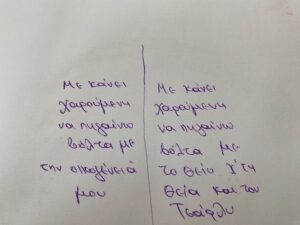 Με κάνει
χαρούμενη
να πηγαίνω
βόλτα με
την οικογένειά
μου
Με κάνει
χαρούμενη
να πηγαίνω
βόλτα με
το θείο
θεία και τον